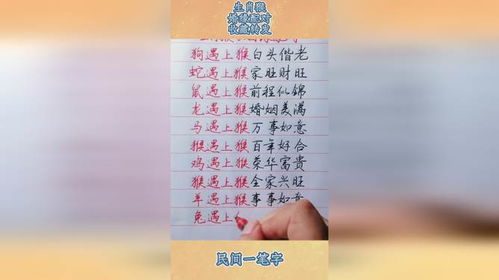 生肖猴
婚姻配对
收藏转发
狗遇上猴白头偕老
蛇遇上猴家旺财旺
鼠遇上猴前程似锦
龙遇上猴婚姻美满
马遇上猴万事如意
猴遇上猴百年好合
鸡遇上猴荣华富贵
猴遇上猴全家兴旺
羊遇上猴事事如意
兔遇上
民间一笔字